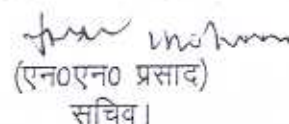 (एन0एन0 प्रसाद)
सचिव।